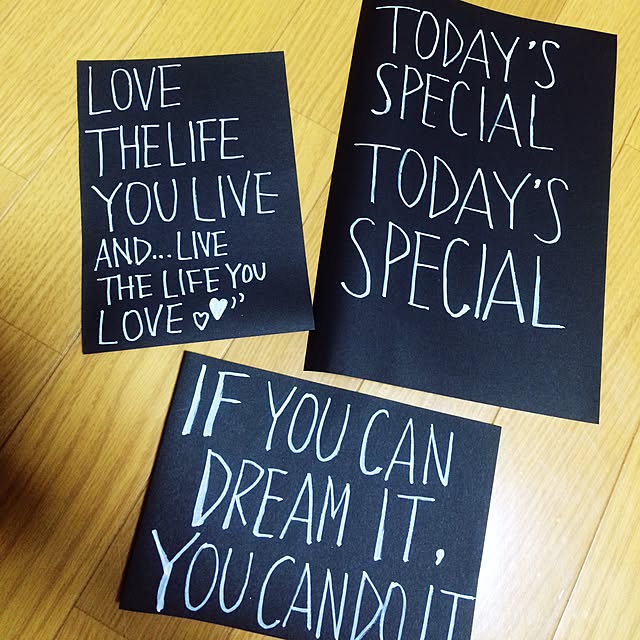 LOVE
THE LIFE
YOU LIVE
AND...LIVE
THE LIFE YOU
LOVE
TODAY'S
SPECIAL
TODAY'S
SPECIAL
IF YOU CAN
DREAM IT,
YOU CAN DO IT